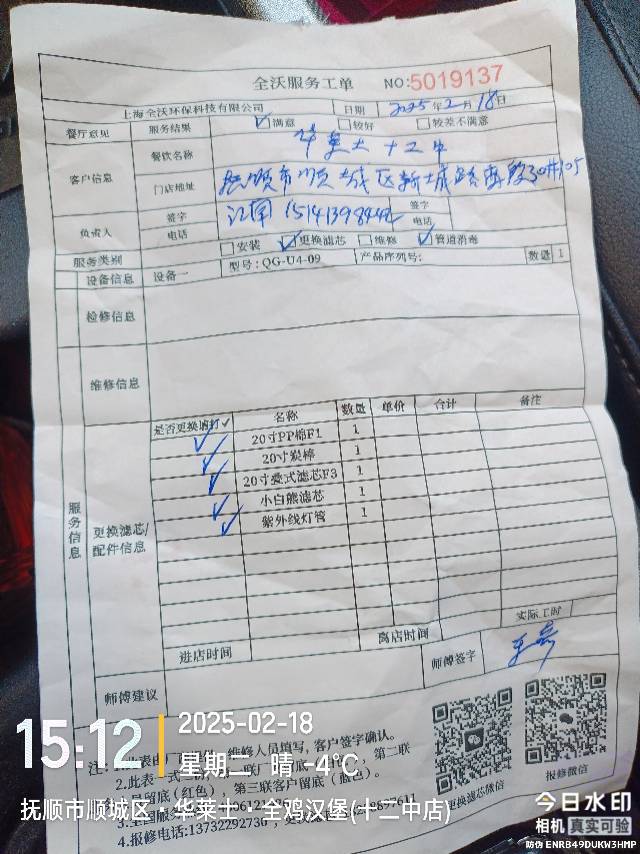 全沃服务工单 NO:5019137
上海全沃环保科技有限公司 日期 2025年2月18日
餐厅意见 服务结果 ☑满意 □较好 □较差不满意
客户信息 餐饮名称 华莱士十二中
门店地址 抚顺市顺城区新城路
负责人 签字 签字
电话 电话
服务类别 □安装 ☑更换滤芯 □维修 ☑管道消毒
设备信息 设备一 型号:QG-U4-09 产品序列号: 数量 1
检修信息
维修信息
服务信息
更换滤芯/配件信息
是否更换请打✓ 名称 数量 单价 合计 备注
✓ 20寸PP棉F1 1
✓ 20寸炭棒 1
✓ 20寸叠式滤芯F3 1
✓ 小白熊滤芯 1
✓ 紫外线灯管 1
实际工时
进店时间 离店时间
师傅建议 师傅签字
维修人员填写,客户签字确认。
2.此表一式
留底(红色),第三联客户留底(蓝色)。
4.报修电话:13732292736
更换滤芯微信 报修微信
15:12
2025-02-18
星期二 晴 -4℃
抚顺市顺城区·华莱士·全鸡汉堡(十二中店)
今日水印
相机 真实可验
防伪 ENRB49DUKW3HMP